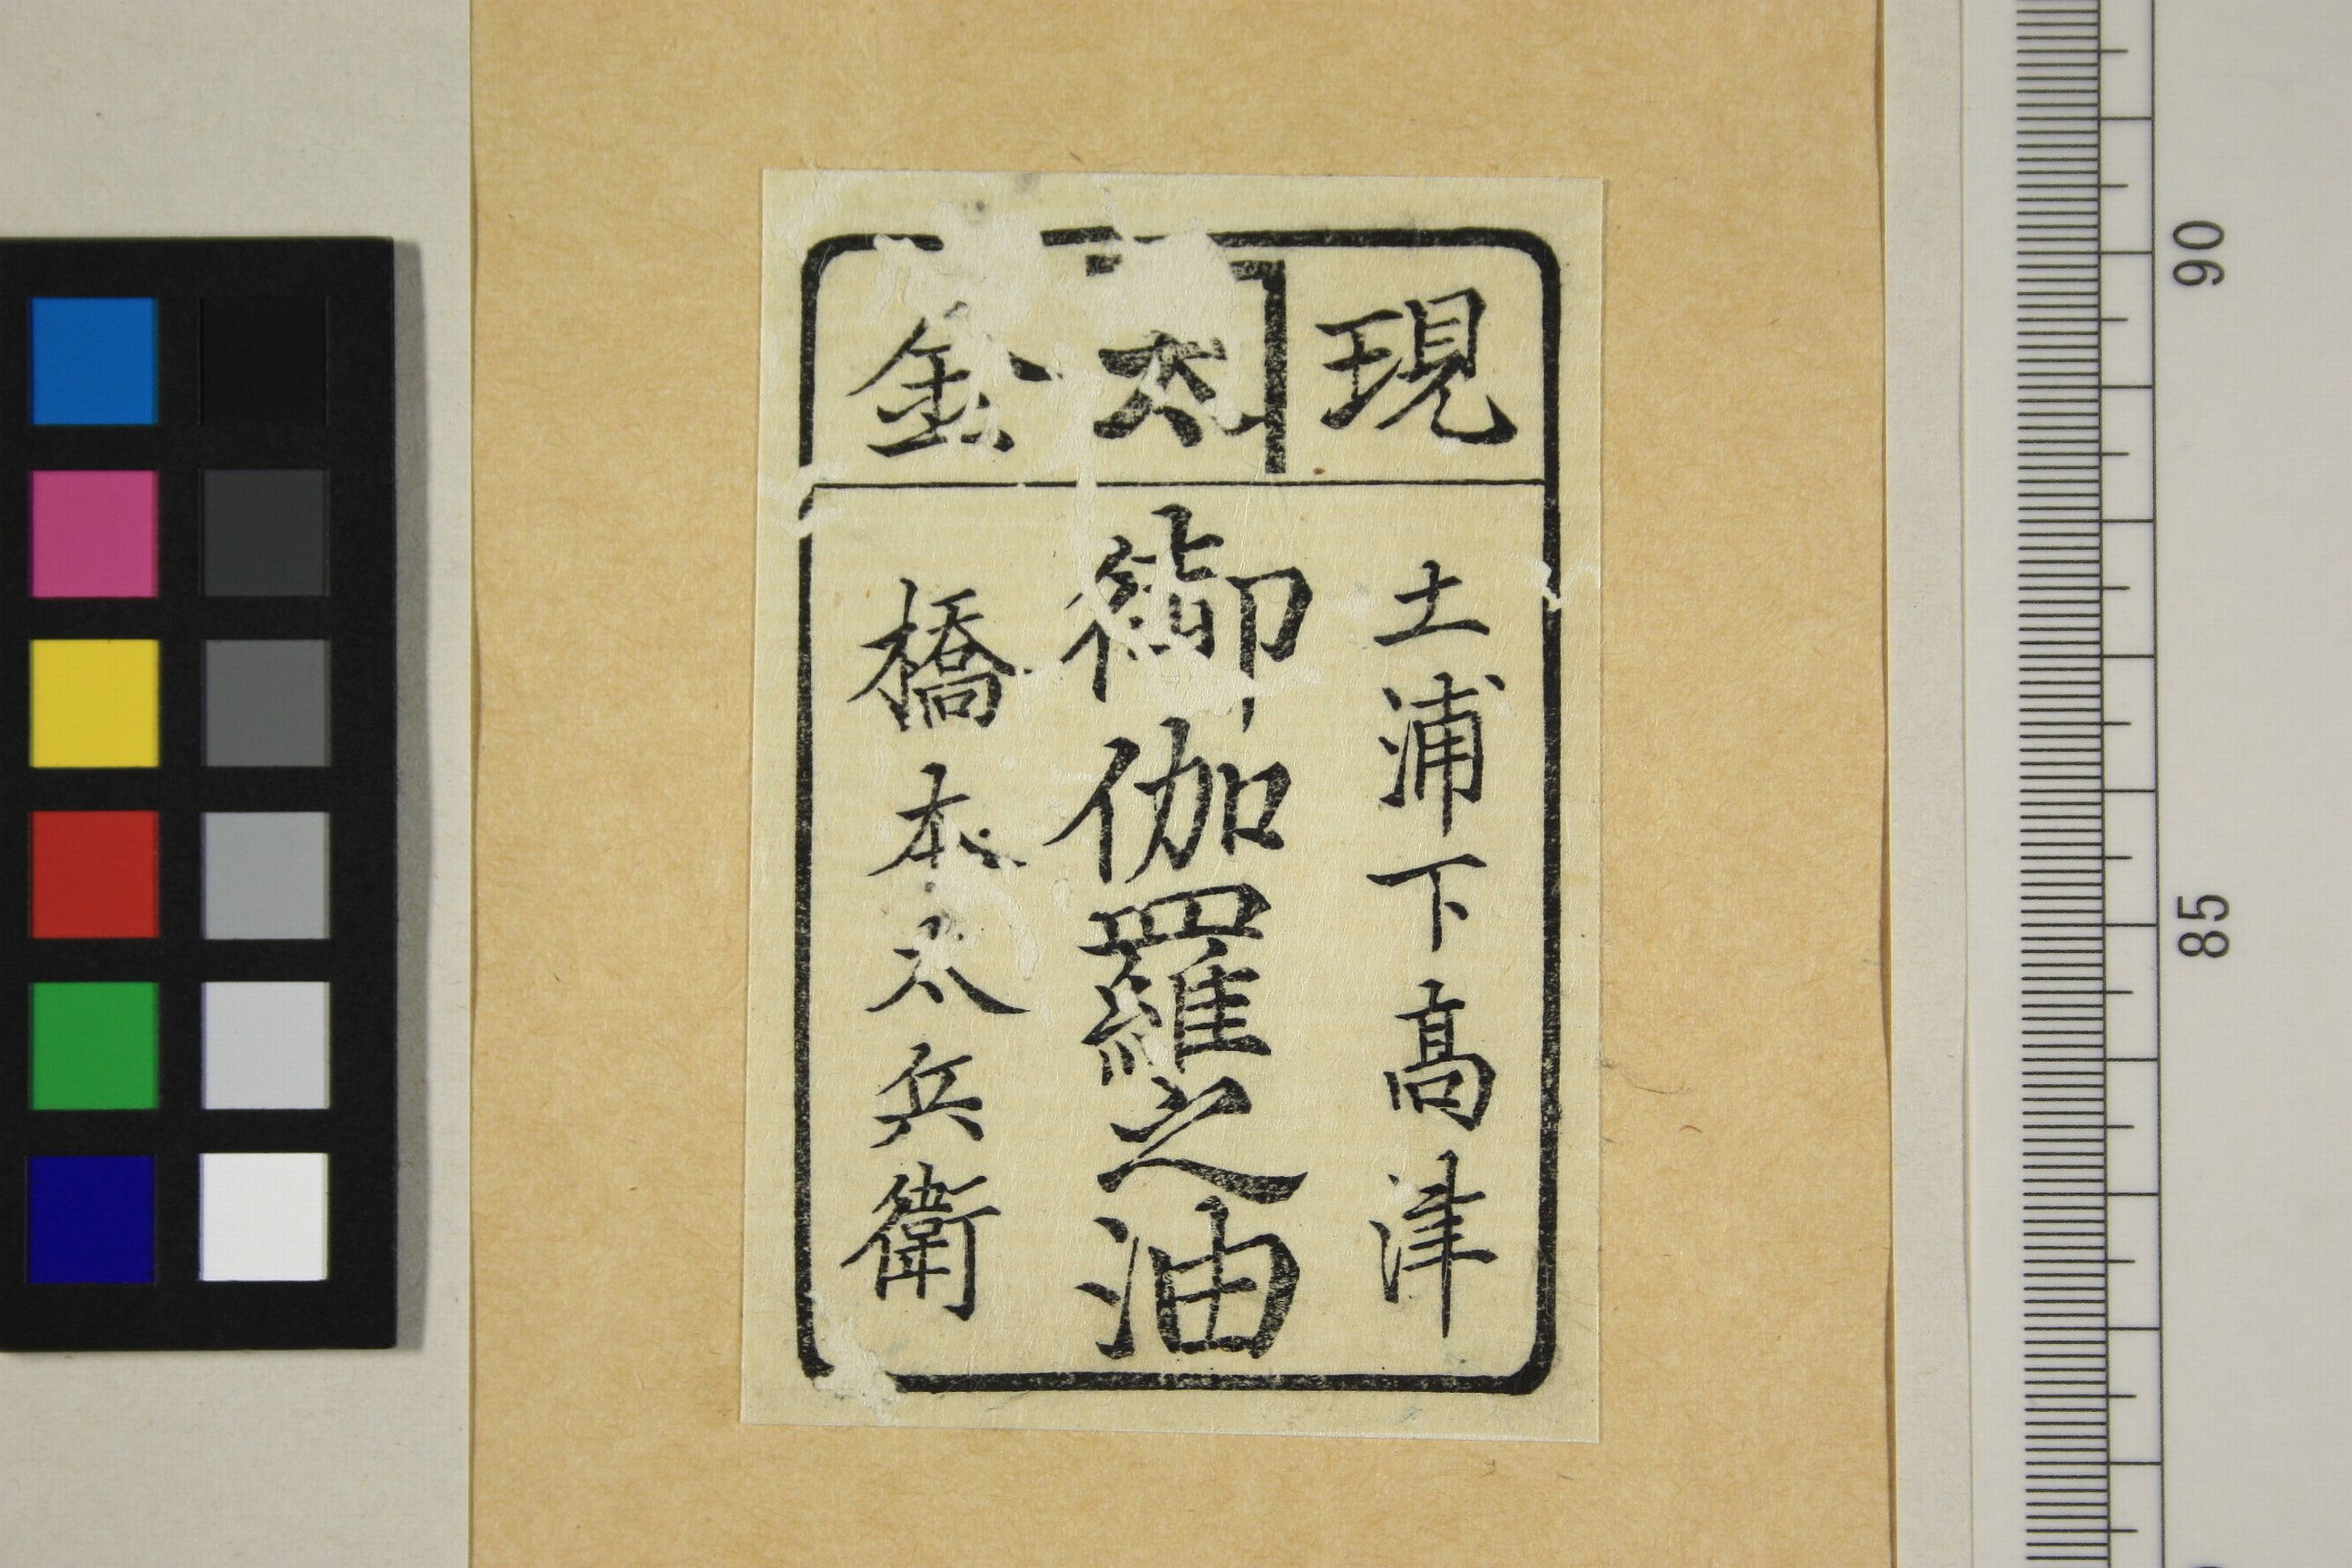 現 太 金
土浦下高津
御伽羅之油
橋本太兵衛
90
85